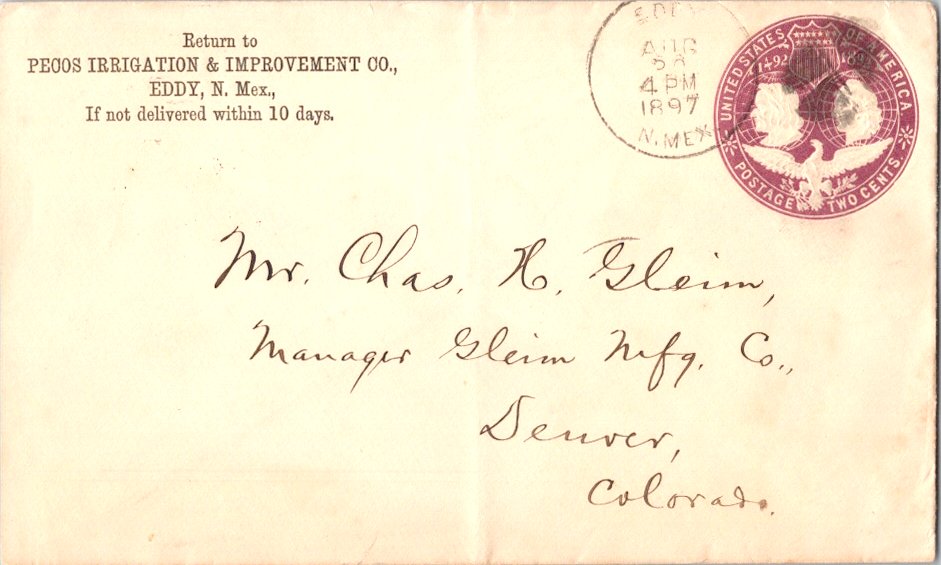 Return to
PECOS IRRIGATION & IMPROVEMENT CO.,
EDDY, N. Mex.,
If not delivered within 10 days.
EDDY
AUG
4 PM
1897
N. MEX
UNITED STATES OF AMERICA
1492 1892
POSTAGE TWO CENTS.
Mr. Chas. H. Gleim,
Manager Gleim Mfg. Co.,
Denver,
Colorado.